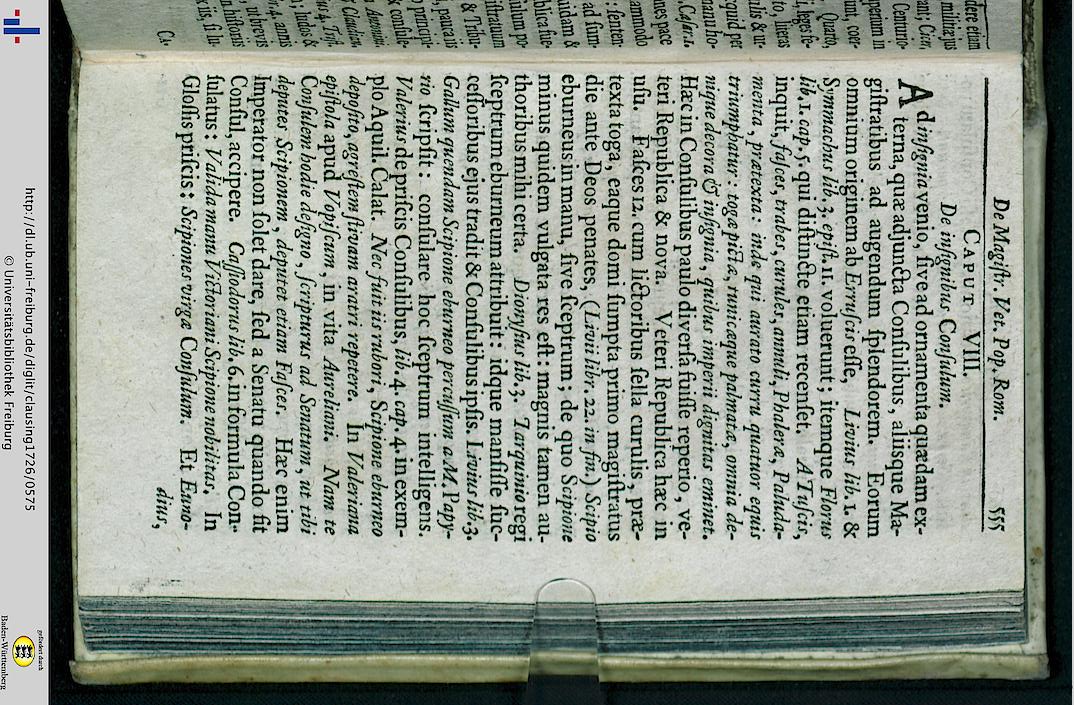 De Magistr. Vet. Pop. Rom. 555
CAPUT VIII.
De insignibus Consulum.
Ad insignia venio, sive ad ornamenta quædam ex-
terna, quæ adjuncta Consulibus, aliisque Ma-
gistratibus ad augendum splendorem. Eorum
omnium originem ab Etruscis esse, Livius lib. 1. &
Symmachus lib. 3. epist. 11. voluerunt; itemque Florus
lib. 1. cap. 5. qui distincte etiam recenset. A Tuscis,
inquit, fasces, trabes, curules, annuli, Phaleræ, Paluda-
menta, prætexta: inde qui aurato curru quatuor equis
triumphatur: togæ pictæ, tunicæque palmatæ, omnia de-
nique decora & insignia, quibus imperii dignitas eminet.
Hæc in Consulibus paulo diversa fuisse reperio, ve-
teri Republica & nova. Veteri Republica hæc in
usu. Fasces 12. cum lictoribus sella curulis, præ-
texta toga, eaque domi sumpta primo magistratus
die ante Deos penates, (Livii libr. 22. in fin.) Scipio
eburneus in manu, sive sceptrum; de quo Scipione
minus quidem vulgata res est: magnis tamen au-
thoribus mihi certa. Dionysius lib. 3. Tarquinio regi
sceptrum eburneum attribuit: idque mansisse suc-
cessoribus ejus tradit & Consulibus ipsis. Livius lib. 3.
Gallum quendam Scipione eburneo percussum a M. Papy-
rio scripsit: consulare hoc sceptrum intelligens.
Valerius de priscis Consulibus, lib. 4. cap. 4. in exem-
plo Aquil. Calat. Nec fuit iis rubori, Scipione eburneo
deposito, agrestem stivam aratri repetere. In Valeriana
epistola apud Vopiscum, in vita Aureliani. Nam te
Consulem hodie designo, scripturus ad Senatum, ut tibi
deputes Scipionem, deputet etiam Fasces. Hæc enim
Imperator non solet dare, sed a Senatu quando fit
Consul, accipere. Cassiodorus lib. 6. in formula Con-
sulatus: Valida manu Victoriam Scipione nobilitas. In
Glossis priscis: Scipiones virga Consulum. Et Euno-
dius,
http://dl.ub.uni-freiburg.de/diglit/clausing1726/0575
© Universitätsbibliothek Freiburg
gefördert durch
Baden-Württemberg